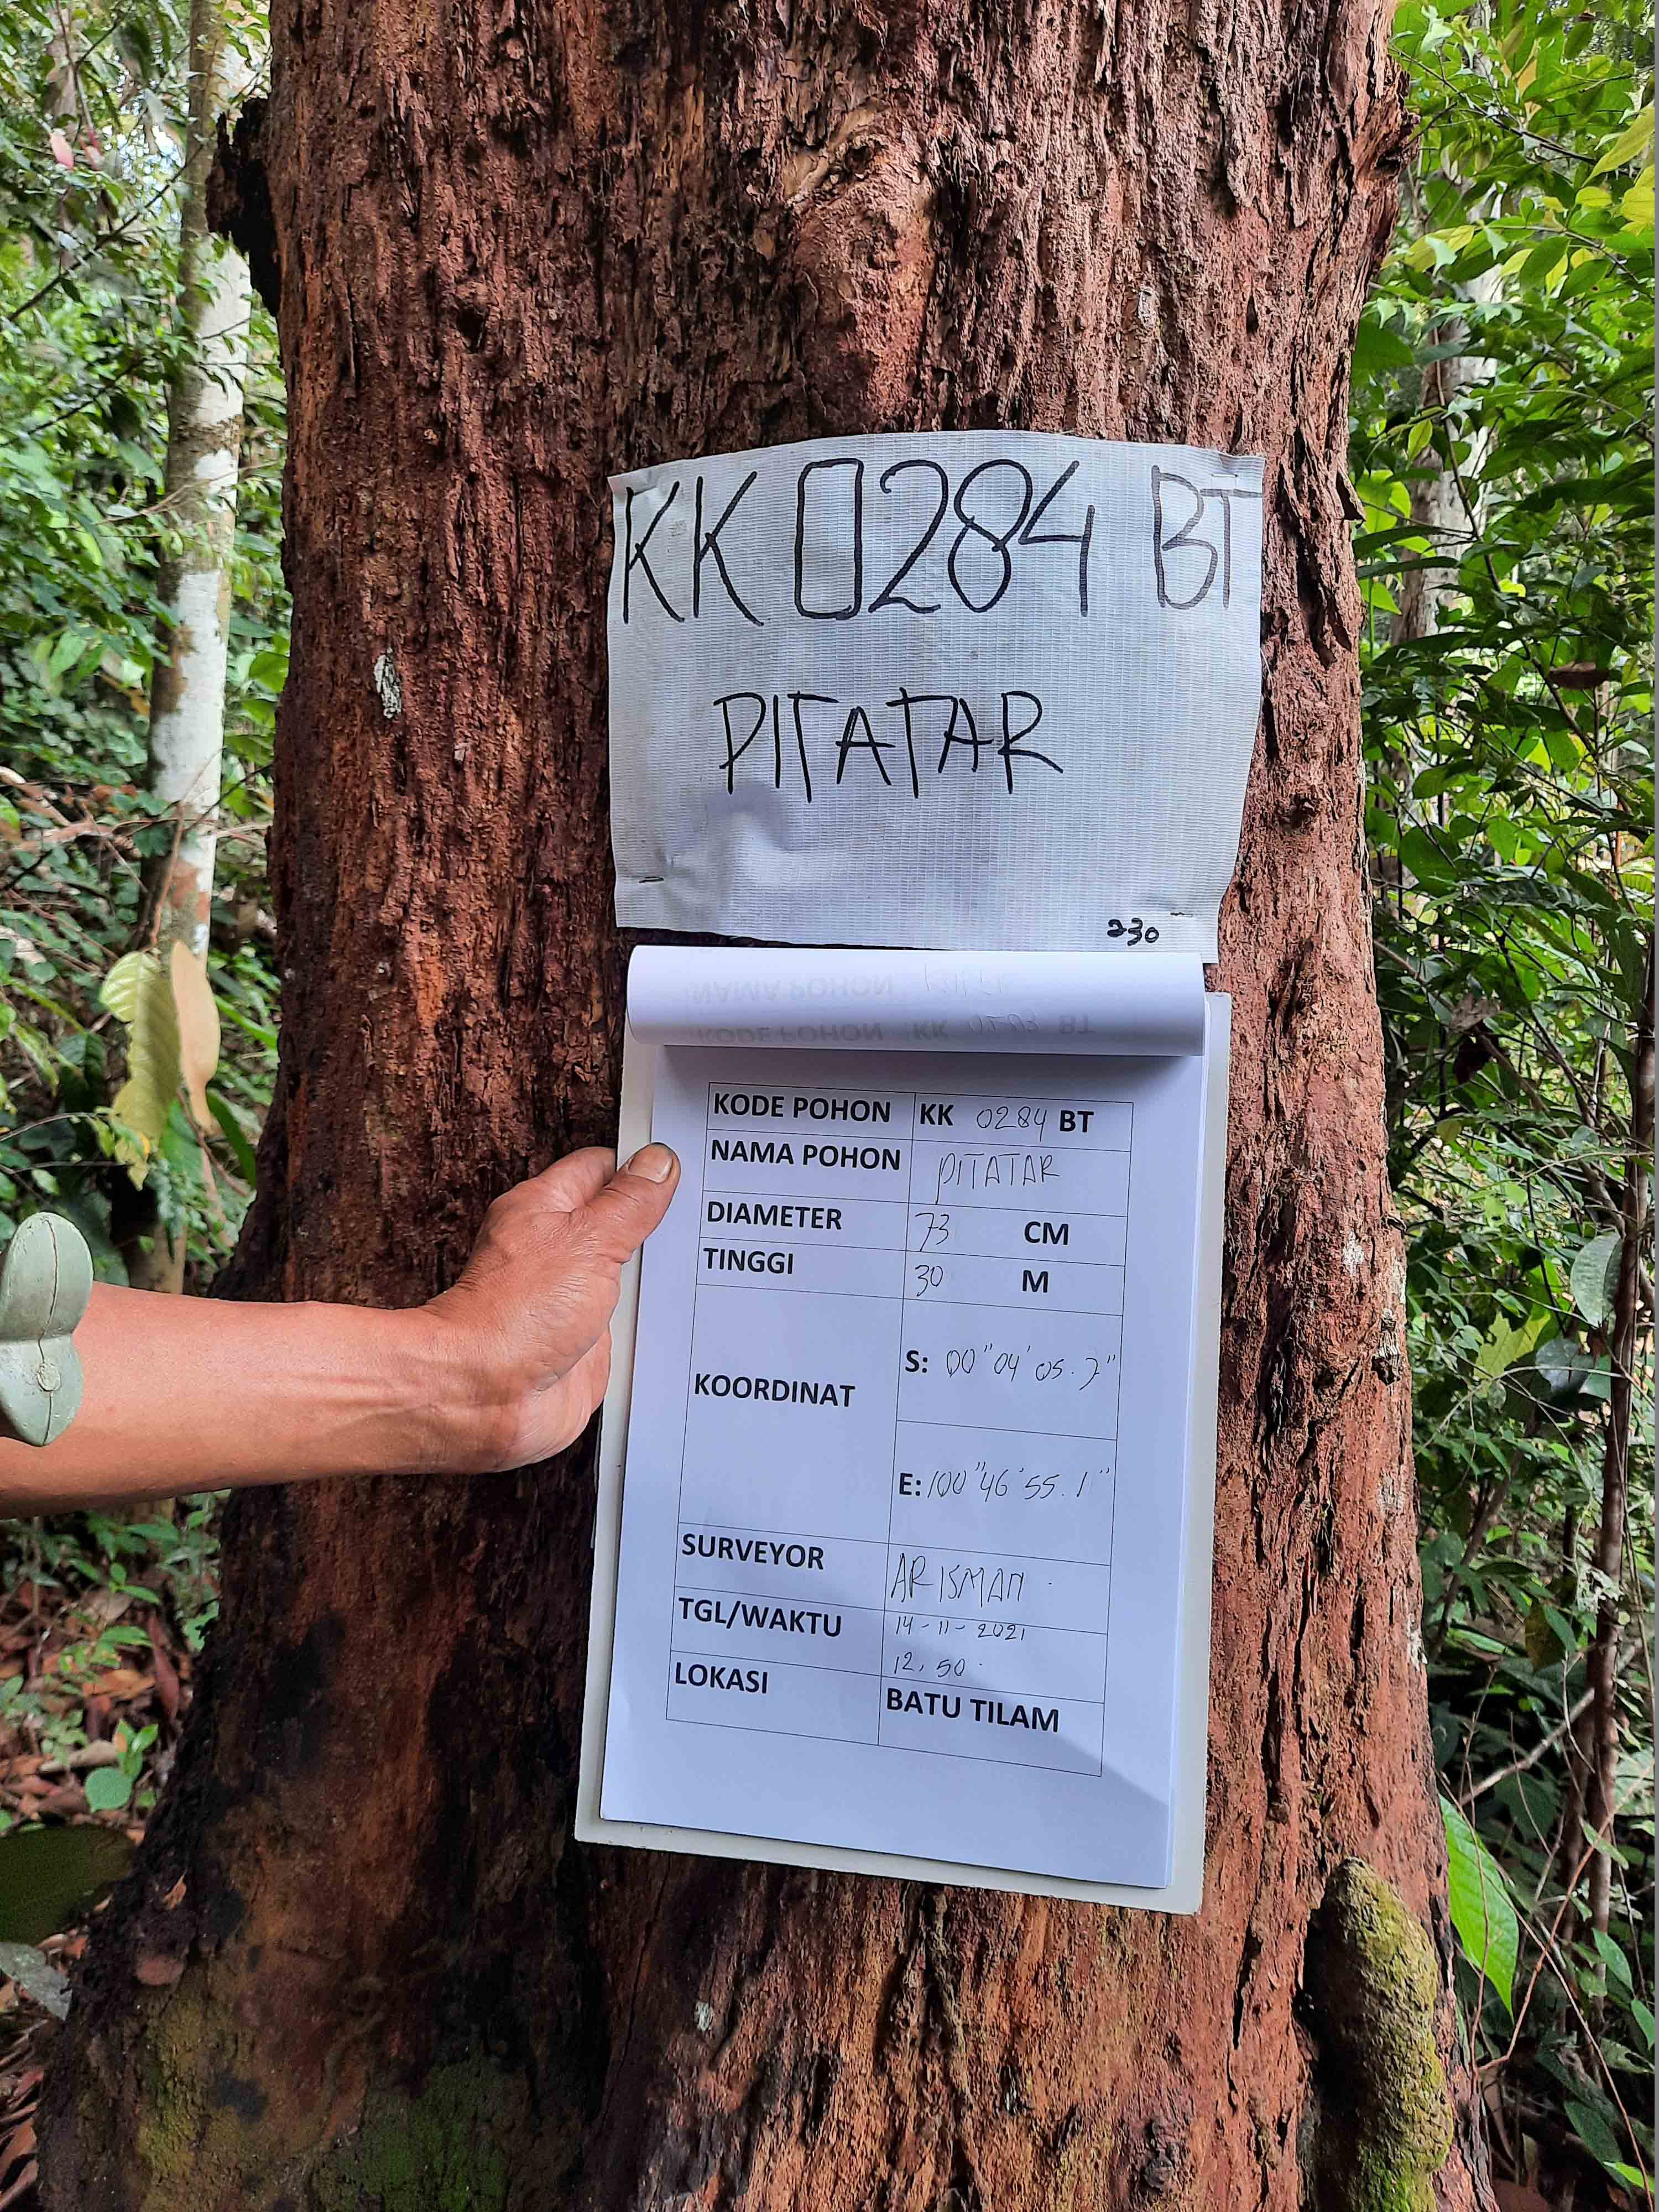 KK 0284 BT
PITATAR
230
KODE POHON KK 0284 BT
NAMA POHON PITATAR
DIAMETER 73 CM
TINGGI 30 M
KOORDINAT
S: 00"04'05.7"
E: 100"46'55.1"
SURVEYOR ARISMAN
TGL/WAKTU 14-11-2021
12.50
LOKASI BATU TILAM